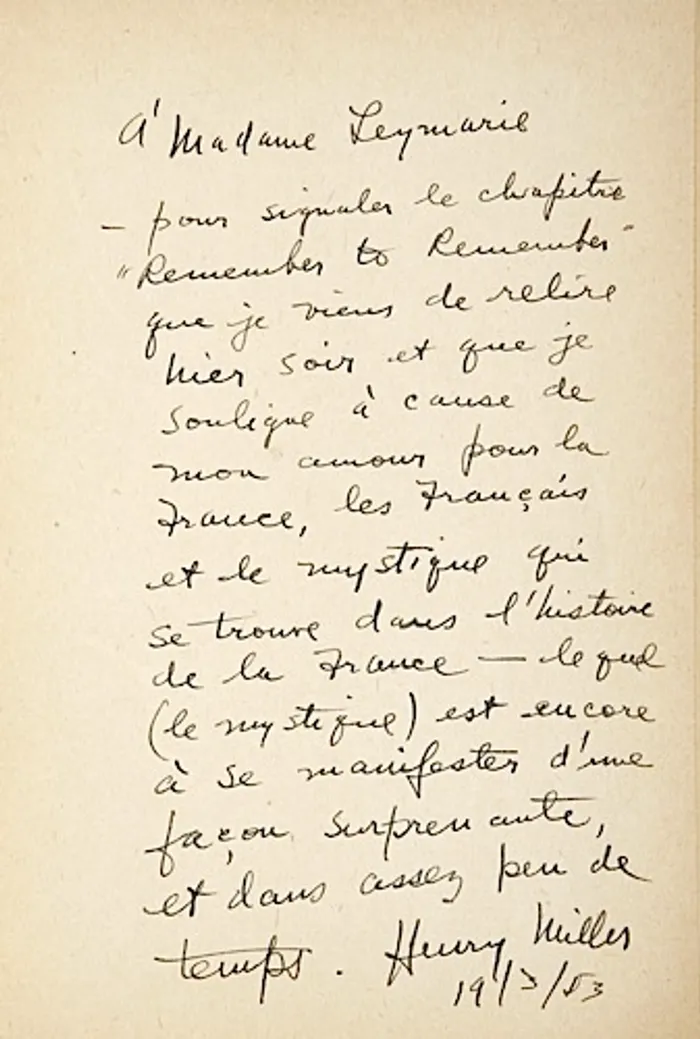 A' Madame Leymarie
— pour signaler le chapitre
"Remember to Remember"
que je viens de relire
hier soir et que je
souligne à cause de
mon amour pour la
France, les Français
et le mystique qui
se trouve dans l'histoire
de la France — le quel
(le mystique) est encore
à se manifester d'une
façon surprenante,
et dans assez peu de
temps. Henry Miller
19/3/53